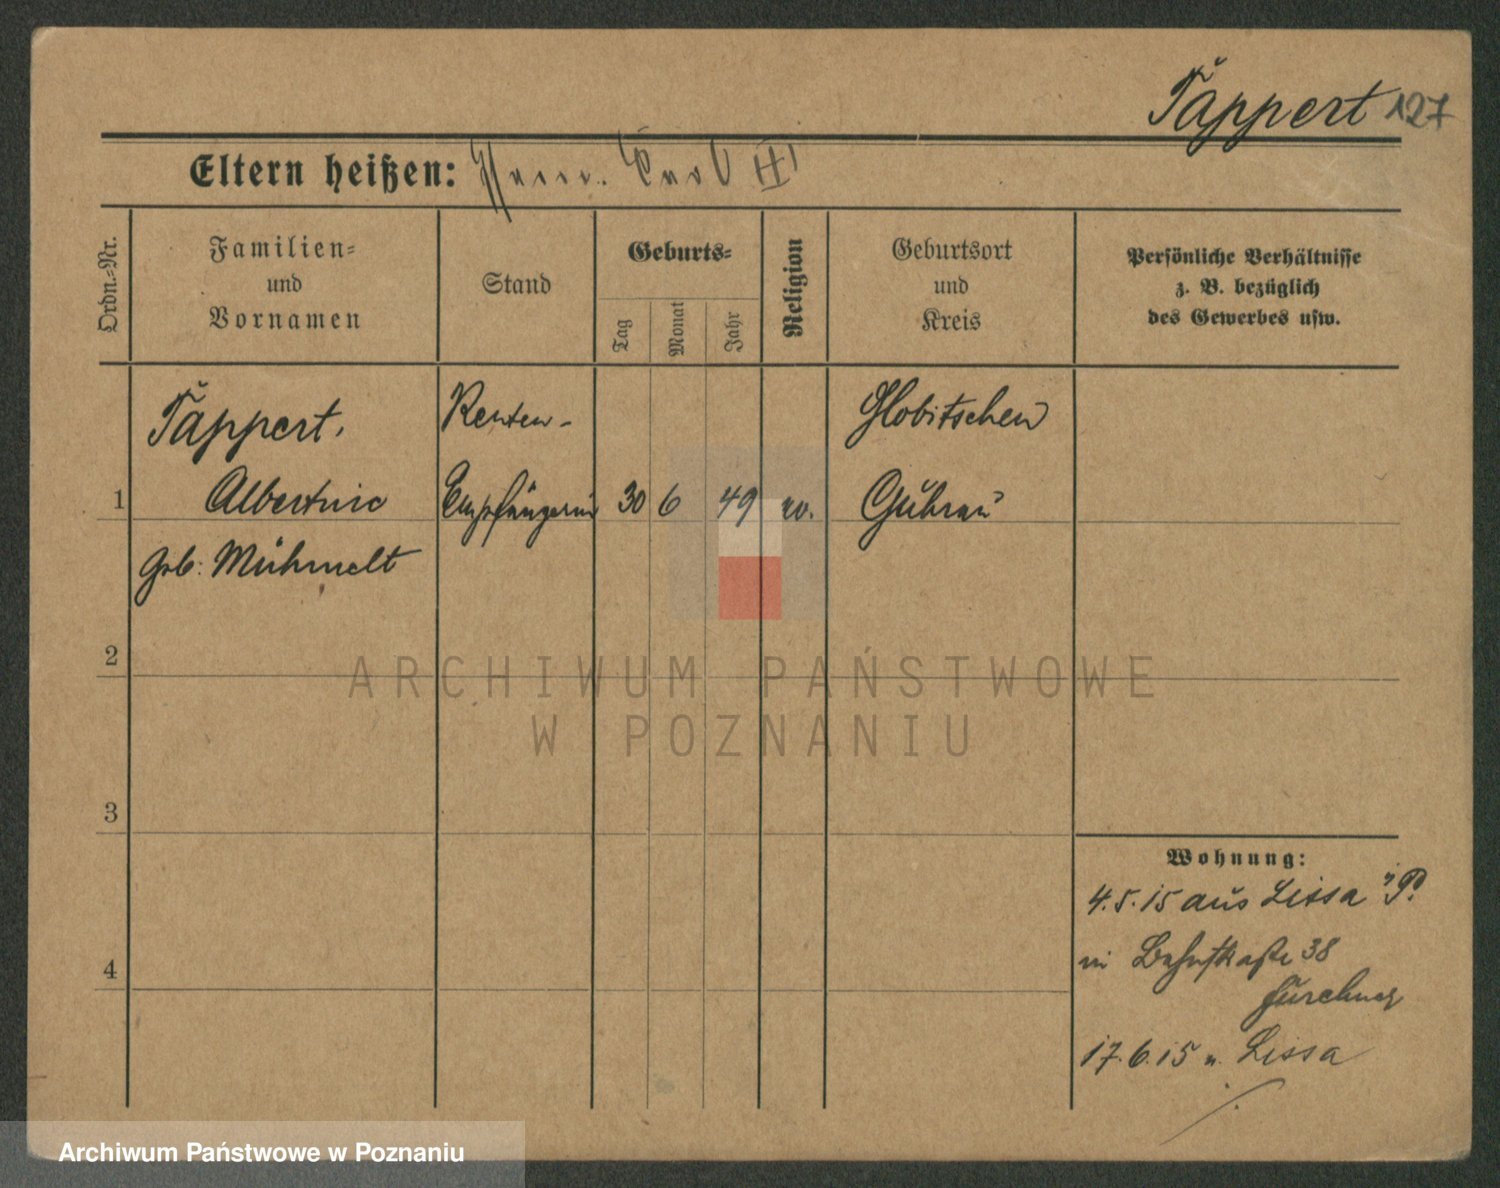 Tappert 127
Eltern heißen:
Ordn.-Nr.
Familien-
und
Vornamen
Stand
Geburts-
Tag
Monat
Jahr
Religion
Geburtsort
und
Kreis
Persönliche Verhältnisse
z. B. bezüglich
des Gewerbes usw.
Tappert, Renten- Globitschen
1 Albertine Empfängerin 30 6 49 ev. Guhrau
Geb: Mühmelt
2
3
4
Wohnung:
4.5.15 aus Lissa i/P.
in 38
17.6.15 n. Lissa
ARCHIWUM PAŃSTWOWE
W POZNANIU
Archiwum Państwowe w Poznaniu